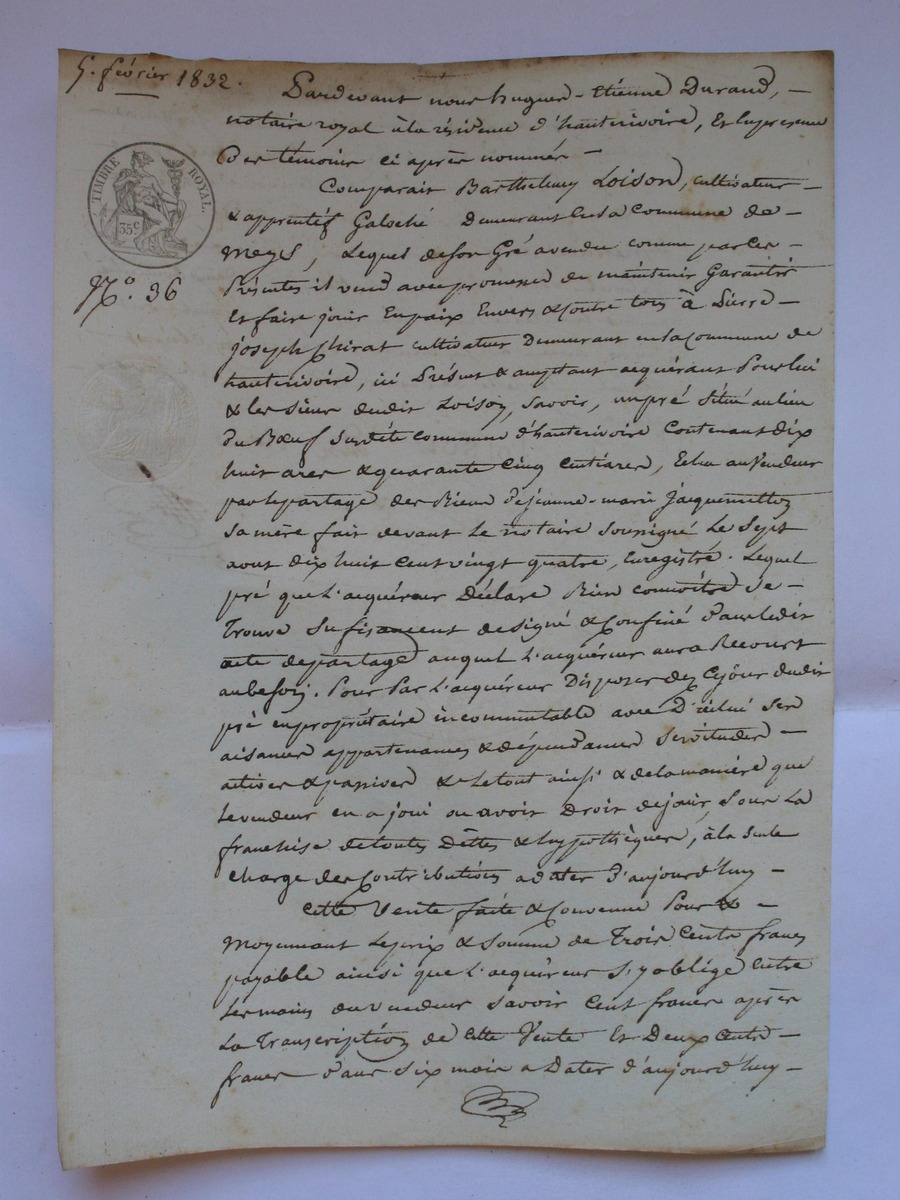 5. février 1832.
Pardevant nous hugues-Etienne Durand,
notaire royal à la résidence d'hauterivoire, Et en presence
Des témoins ci après nommés
TIMBRE ROYAL.
35c
Comparait Barthelemy Loison, cultivateur
& apprentif Galoché Demeurant en la Commune de
Meys, Lequel de son Gré a vendu comme par ces
No. 36
Présentes il vend avec promesse de maintenir Garantir
Et faire jouir En paix Envers & Contre tous à Pierre
joseph Chirat cultivateur Demeurant en la Commune de
hauterivoire, ici Présent & acceptant acquérant Pour lui
& les siens dudit Loison, savoir, un pré Situé au lieu
du Bœuf susdite commune d'hauterivoire Contenant Dix
huit ares & quarante Cinq Centiares, Echu au Vendeur
par le partage des Biens de jeanne-marie Jacquemetton
sa mère fait devant Le notaire soussigné Le Sept
aout dix huit Cent vingt quatre, Enregistré. Lequel
pré que L'acquéreur Déclare Bien connoître Se
Trouve Sufisament designé & Confiné dans ledit
acte de partage auquel L'acquéreur aura Recourt
au besoin. Pour Par L'acquéreur Disposer dez Cejour dudit
pré en propriétaire incommutable avec D'icelui Ses
aisances appartenances & dépendances Servitudes
actives & passives & Le tout ainsi & de la manière que
Le vendeur en a joui ou avoit Droit de jouir, Sous La
franchise de toutes Dêttes & hypothèques, à la seule
charge des Contributions a dater d'aujourd'huy
Cette Vente faite & Convenue Pour &
Moyennant Le prix & Somme de Trois Cents francs
payable ainsi que L'acquéreur S'y oblige Entre
Les mains du vendeur savoir Cent francs après
La Transcription de Cette Vente Et Deux Cents
francs dans Six mois a Dater d'aujourd'huy